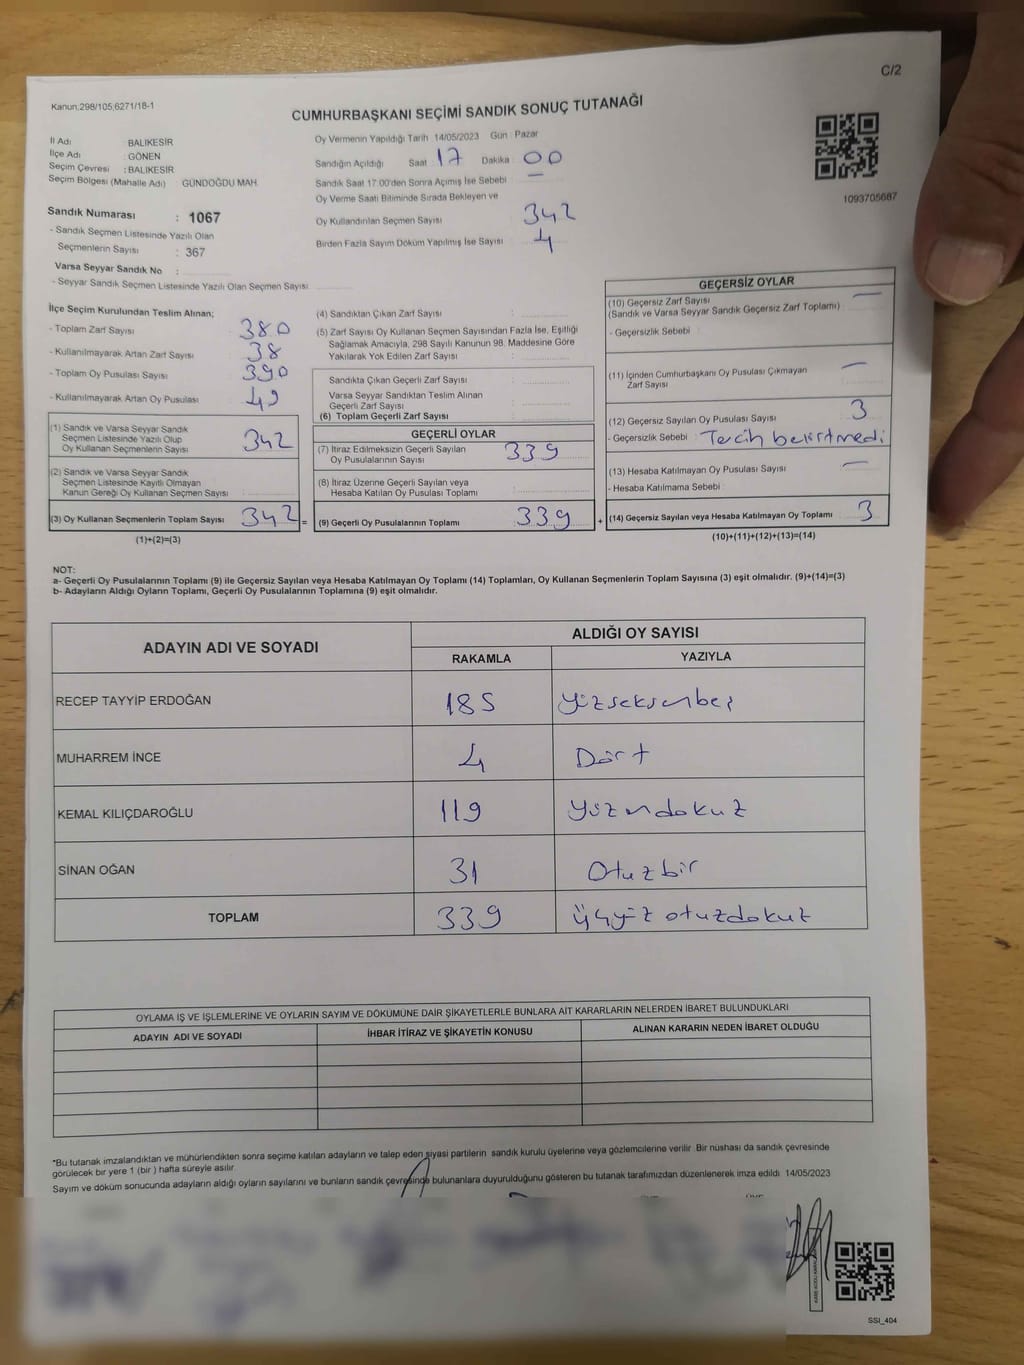 C/2
Kanun:298/105,6271/18-1
CUMHURBAŞKANI SEÇİMİ SANDIK SONUÇ TUTANAĞI
İl Adı BALIKESİR
İlçe Adı : GÖNEN
Seçim Çevresi : BALIKESİR
Seçim Bölgesi (Mahalle Adı) GÜNDOĞDU MAH.
Sandık Numarası : 1067
- Sandık Seçmen Listesinde Yazılı Olan
Seçmenlerin Sayısı : 367
Varsa Seyyar Sandık No :
- Seyyar Sandık Seçmen Listesinde Yazılı Olan Seçmen Sayısı
Oy Vermenin Yapıldığı Tarih 14/05/2023 Gün : Pazar
Sandığın Açıldığı Saat : 17 Dakika : 00
Sandık Saat 17:00'den Sonra Açımış İse Sebebi : —
Oy Verme Saati Bitiminde Sırada Bekleyen ve
Oy Kullandırılan Seçmen Sayısı : 342
Birden Fazla Sayım Döküm Yapılmış İse Sayısı : 4
1093705687
İlçe Seçim Kurulundan Teslim Alınan;
- Toplam Zarf Sayısı : 380
- Kullanılmayarak Artan Zarf Sayısı : 38
- Toplam Oy Pusulası Sayısı : 390
- Kullanılmayarak Artan Oy Pusulası : 49
(1) Sandık ve Varsa Seyyar Sandık
Seçmen Listesinde Yazılı Olup
Oy Kullanan Seçmenlerin Sayısı : 342
(2) Sandık ve Varsa Seyyar Sandık
Seçmen Listesinde Kayıtlı Olmayan
Kanun Gereği Oy Kullanan Seçmen Sayısı :
(3) Oy Kullanan Seçmenlerin Toplam Sayısı 342 =
(1)+(2)=(3)
(4) Sandıktan Çıkan Zarf Sayısı :
(5) Zarf Sayısı Oy Kullanan Seçmen Sayısından Fazla İse, Eşitliği
Sağlamak Amacıyla, 298 Sayılı Kanunun 98. Maddesine Göre
Yakılarak Yok Edilen Zarf Sayısı :
Sandıkta Çıkan Geçerli Zarf Sayısı :
Varsa Seyyar Sandıktan Teslim Alınan
Geçerli Zarf Sayısı :
(6) Toplam Geçerli Zarf Sayısı :
GEÇERLİ OYLAR
(7) İtiraz Edilmeksizin Geçerli Sayılan
Oy Pusulalarının Sayısı : 339
(8) İtiraz Üzerine Geçerli Sayılan veya
Hesaba Katılan Oy Pusulası Toplamı :
(9) Geçerli Oy Pusulalarının Toplamı : 339 +
GEÇERSİZ OYLAR
(10) Geçersiz Zarf Sayısı
(Sandık ve Varsa Seyyar Sandık Geçersiz Zarf Toplamı) : —
- Geçersizlik Sebebi :
(11) İçinden Cumhurbaşkanı Oy Pusulası Çıkmayan
Zarf Sayısı : —
(12) Geçersiz Sayılan Oy Pusulası Sayısı : 3
- Geçersizlik Sebebi : Tercih belirtmedi
(13) Hesaba Katılmayan Oy Pusulası Sayısı : —
- Hesaba Katılmama Sebebi :
(14) Geçersiz Sayılan veya Hesaba Katılmayan Oy Toplamı : 3
(10)+(11)+(12)+(13)=(14)
NOT:
a- Geçerli Oy Pusulalarının Toplamı (9) ile Geçersiz Sayılan veya Hesaba Katılmayan Oy Toplamı (14) Toplamları, Oy Kullanan Seçmenlerin Toplam Sayısına (3) eşit olmalıdır. (9)+(14)=(3)
b- Adayların Aldığı Oyların Toplamı, Geçerli Oy Pusulalarının Toplamına (9) eşit olmalıdır.
ADAYIN ADI VE SOYADI ALDIĞI OY SAYISI
RAKAMLA YAZIYLA
RECEP TAYYİP ERDOĞAN 185 yüzseksenbeş
MUHARREM İNCE 4 Dört
KEMAL KILIÇDAROĞLU 119 yüzondokuz
SİNAN OĞAN 31 Otuzbir
TOPLAM 339 üçyüz otuzdokuz
OYLAMA İŞ VE İŞLEMLERİNE VE OYLARIN SAYIM VE DÖKÜMÜNE DAİR ŞİKAYETLERLE BUNLARA AİT KARARLARIN NELERDEN İBARET BULUNDUKLARI
ADAYIN ADI VE SOYADI İHBAR İTİRAZ VE ŞİKAYETİN KONUSU ALINAN KARARIN NEDEN İBARET OLDUĞU
*Bu tutanak imzalandıktan ve mühürlendikten sonra seçime katılan adayların ve talep eden siyasi partilerin sandık kurulu üyelerine veya gözlemcilerine verilir. Bir nüshası da sandık çevresinde
görülecek bir yere 1 (bir) hafta süreyle asılır.
Sayım ve döküm sonucunda adayların aldığı oyların sayılarını ve bunların sandık çevresinde bulunanlara duyurulduğunu gösteren bu tutanak tarafımızdan düzenlenerek imza edildi. 14/05/2023
SSI_404